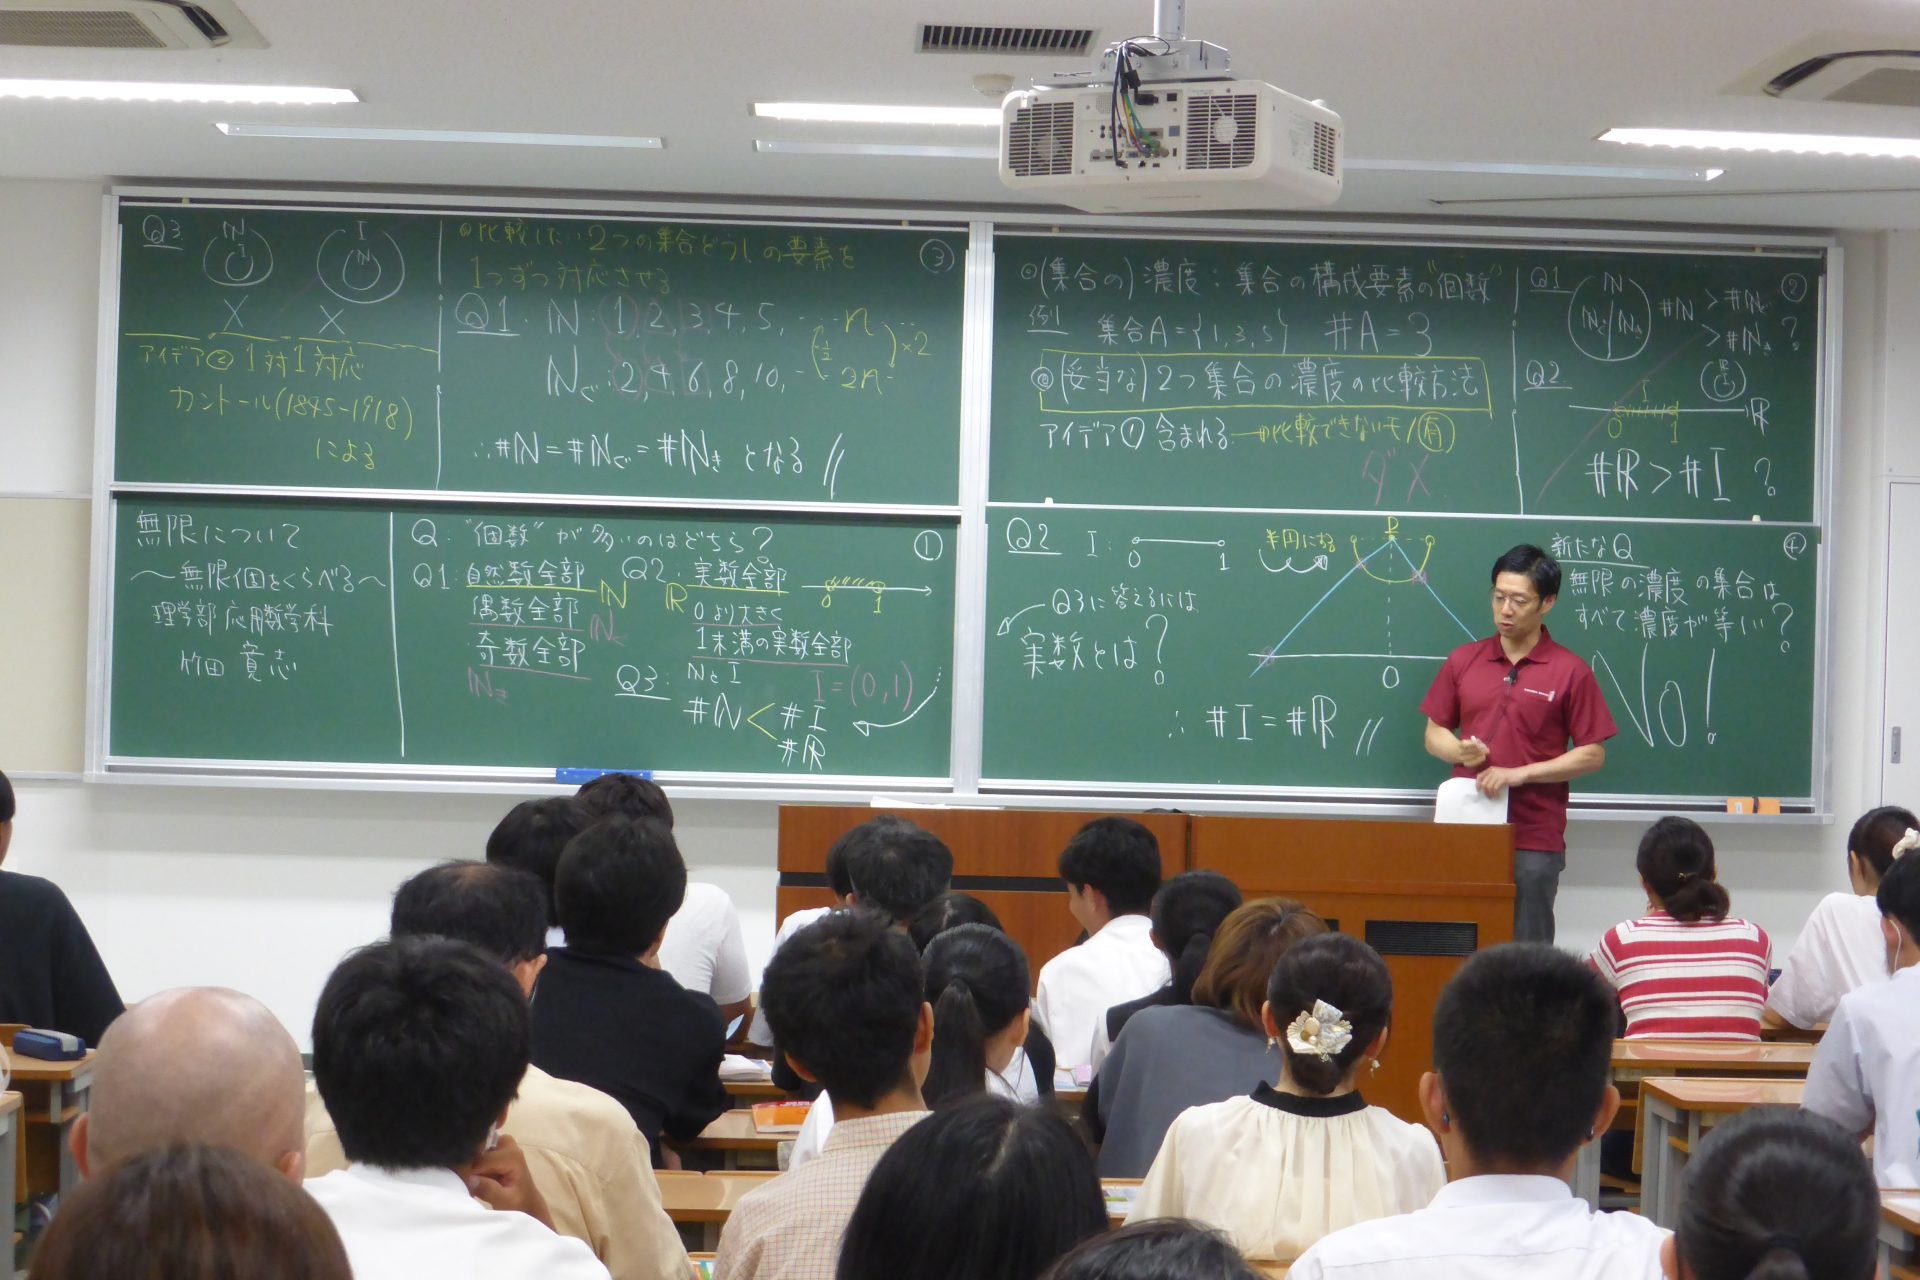 無限について
〜無限個をくらべる〜
理学部 応用数学科
竹田 寛志
①
Q. "個数"が多いのはどちら?
Q1: 自然数全部 ℕ
偶数全部 ℕぐ
奇数全部
ℕき
Q2: 実数全部
ℝ 0より大きく
1未満の実数全部
0 1
I = (0,1)
Q3: ℕとI
#ℕ < #I
#ℝ
②
◎(集合の)濃度:集合の構成要素の"個数"
例 集合A={1,3,5} #A=3
◎(妥当な)2つ集合の濃度の比較方法
アイデア① 含まれる→比較できないモノ有
ダメ
Q1
ℕ
ℕぐ ℕき
#ℕ > #ℕぐ
> #ℕき ?
Q2
I
0 1 ℝ
#ℝ>#I ?
Q3
ℕ I
I ℕ
X X
アイデア② 1対1対応
カントール(1845-1918)
による
③
◎比較したい2つの集合どうしの要素を
1つずつ対応させる
Q1. ℕ: 1, 2, 3, 4, 5, … n …
ℕぐ: 2, 4, 6, 8, 10, … 2n …
×½ ×2
∴#ℕ=#ℕぐ=#ℕき となる //
④
Q2 I: 0 1
半円にする
P
0
Q3に答えるには
実数とは?
∴ #I=#ℝ //
新たなQ
無限の濃度の集合は
すべて濃度が等しい?
No!